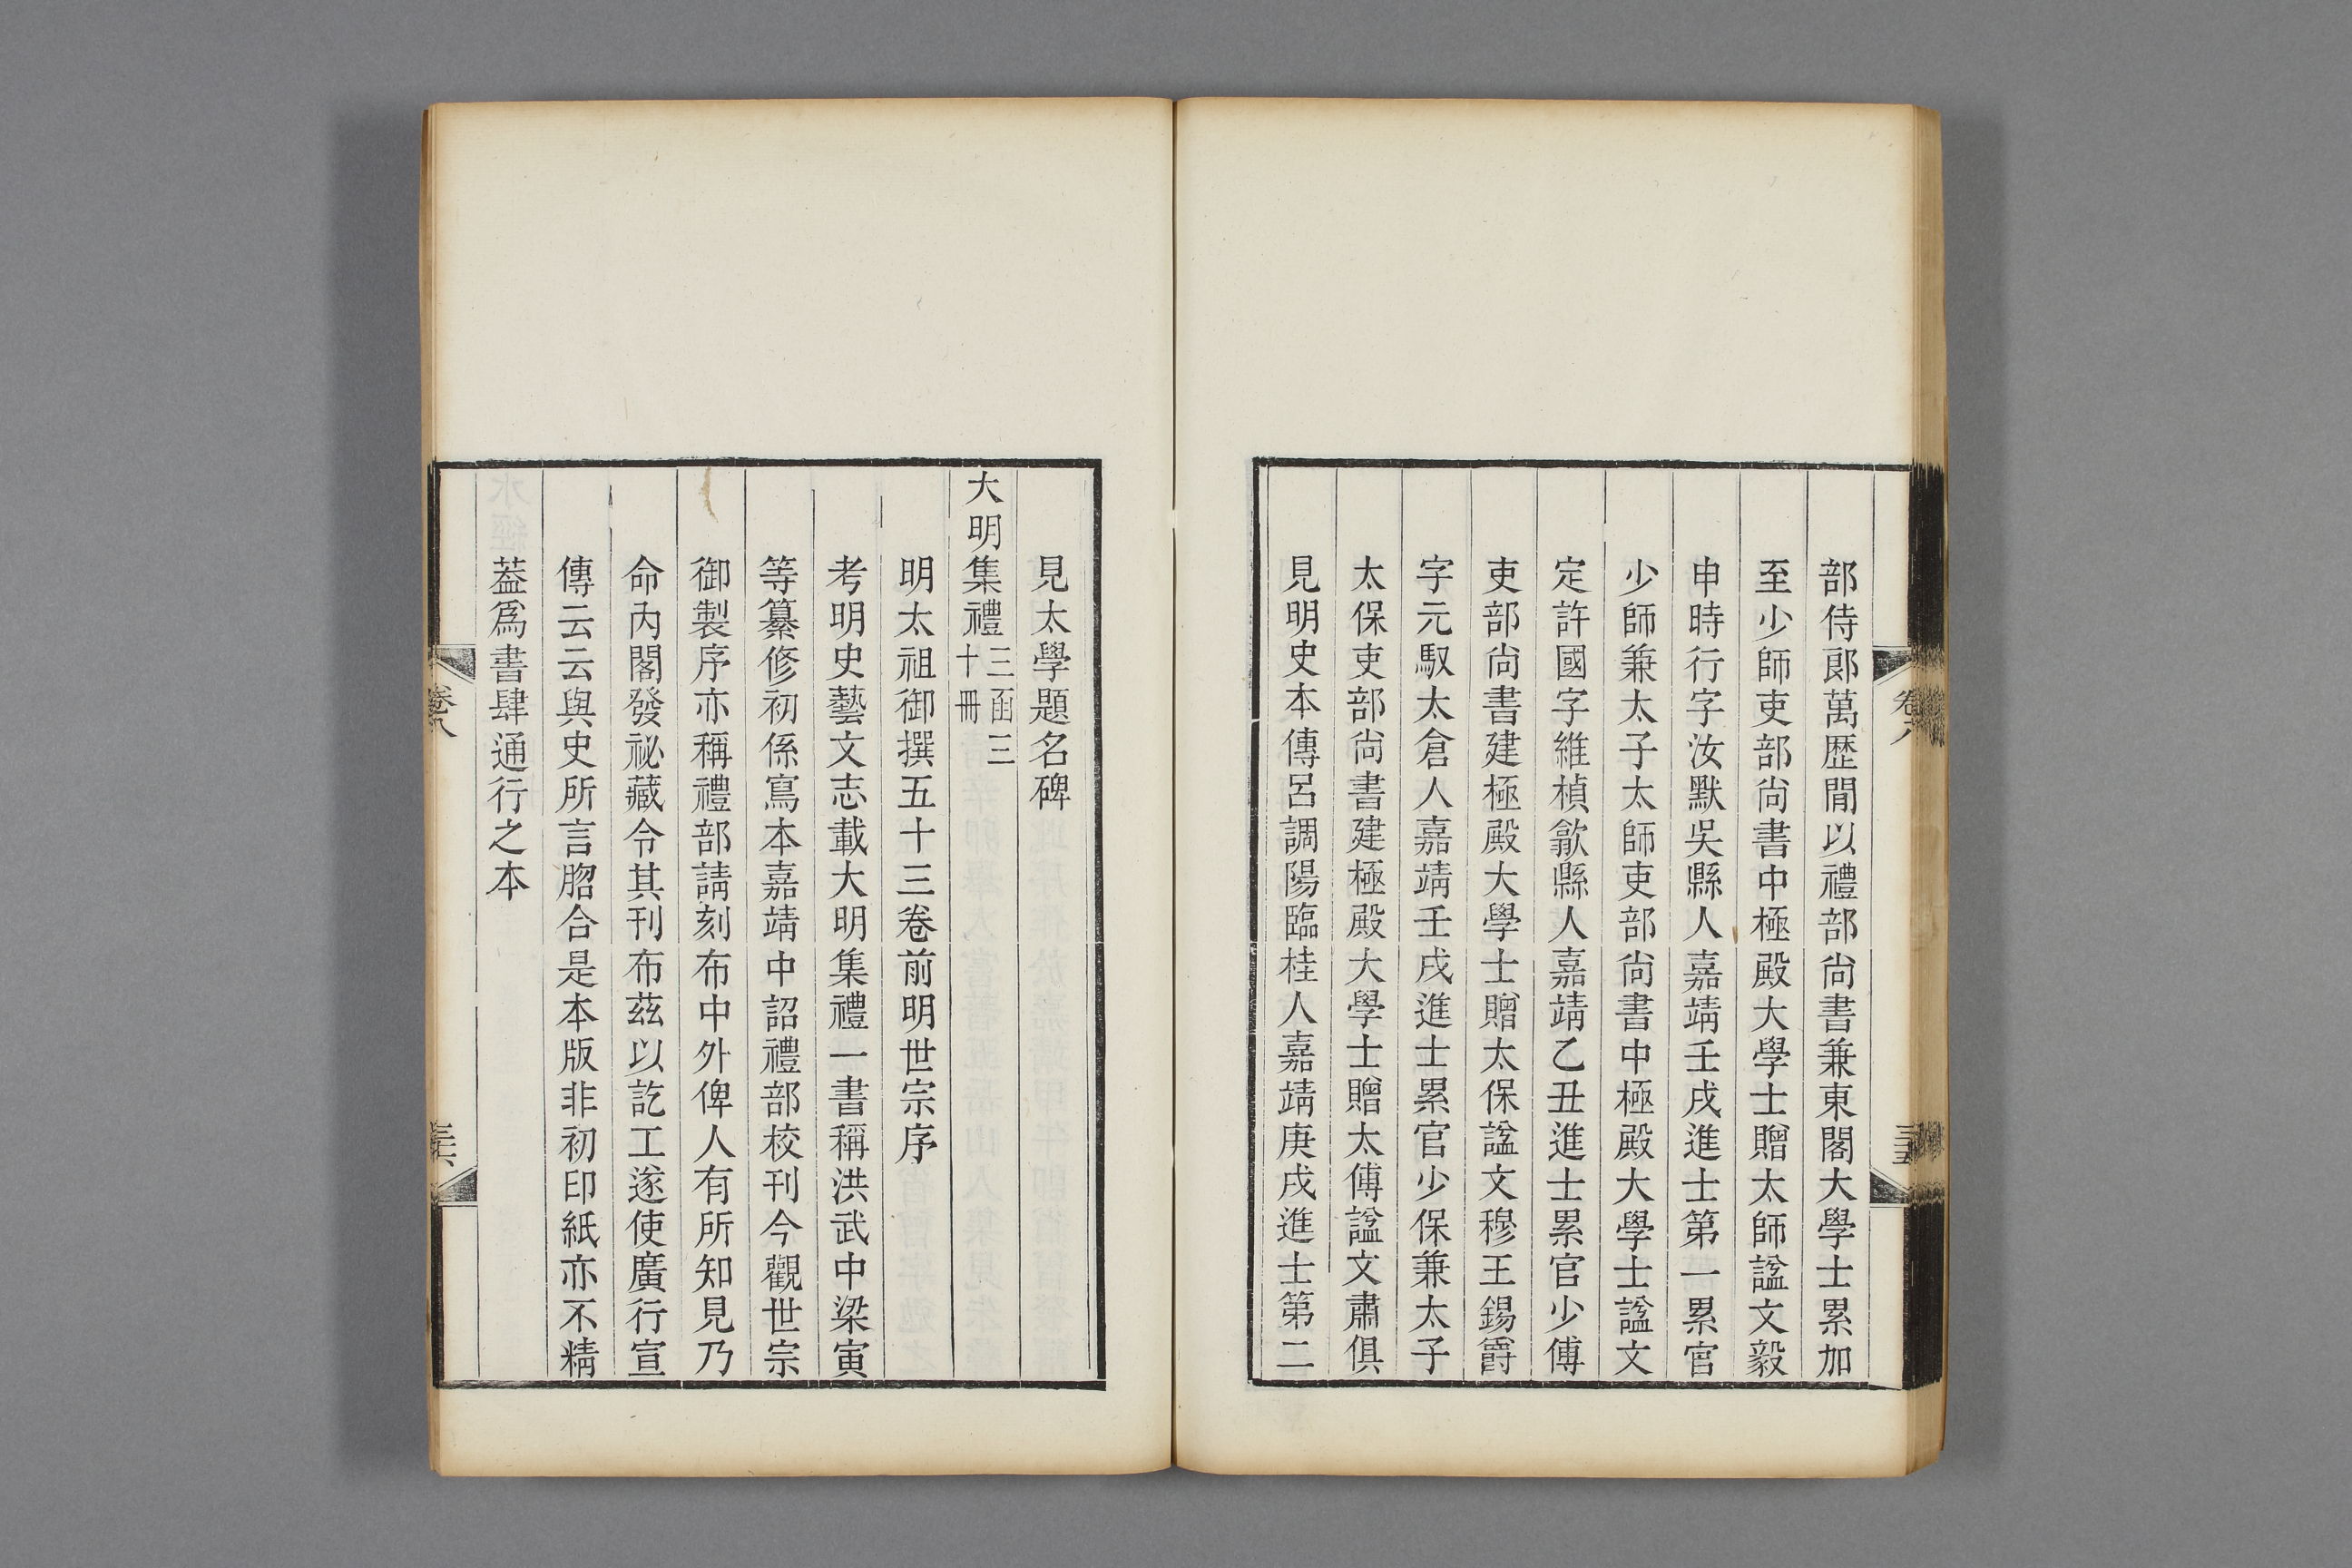 部侍郎萬歷閒以禮部尚書兼東閣大學士累加
至少師吏部尚書中極殿大學士贈太師諡文毅
申時行字汝默吳縣人嘉靖壬戌進士第一累官
少師兼太子太師吏部尚書中極殿大學士諡文
定許國字維楨歙縣人嘉靖乙丑進士累官少傅
吏部尚書建極殿大學士贈太保諡文穆王錫爵
字元馭太倉人嘉靖壬戌進士累官少保兼太子
太保吏部尚書建極殿大學士贈太傅諡文肅俱
見明史本傳呂調陽臨桂人嘉靖庚戌進士第二
卷八
三十五
見太學題名碑
大明集禮三函三十冊
明太祖御撰五十三卷前明世宗序
考明史藝文志載大明集禮一書稱洪武中梁寅
等纂修初係寫本嘉靖中詔禮部校刊今觀世宗
御製序亦稱禮部請刻布中外俾人有所知見乃
命內閣發祕藏令其刊布茲以訖工遂使廣行宣
傳云云與史所言脗合是本版非初印紙亦不精
葢爲書肆通行之本
卷八
三十六